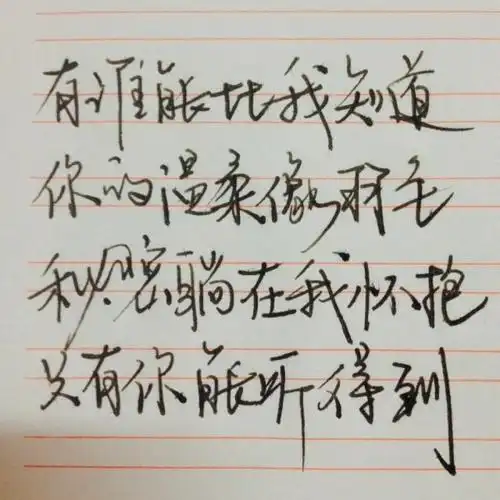 有谁能比我知道
你的温柔像羽毛
秘密躺在我怀抱
只有你能听得到